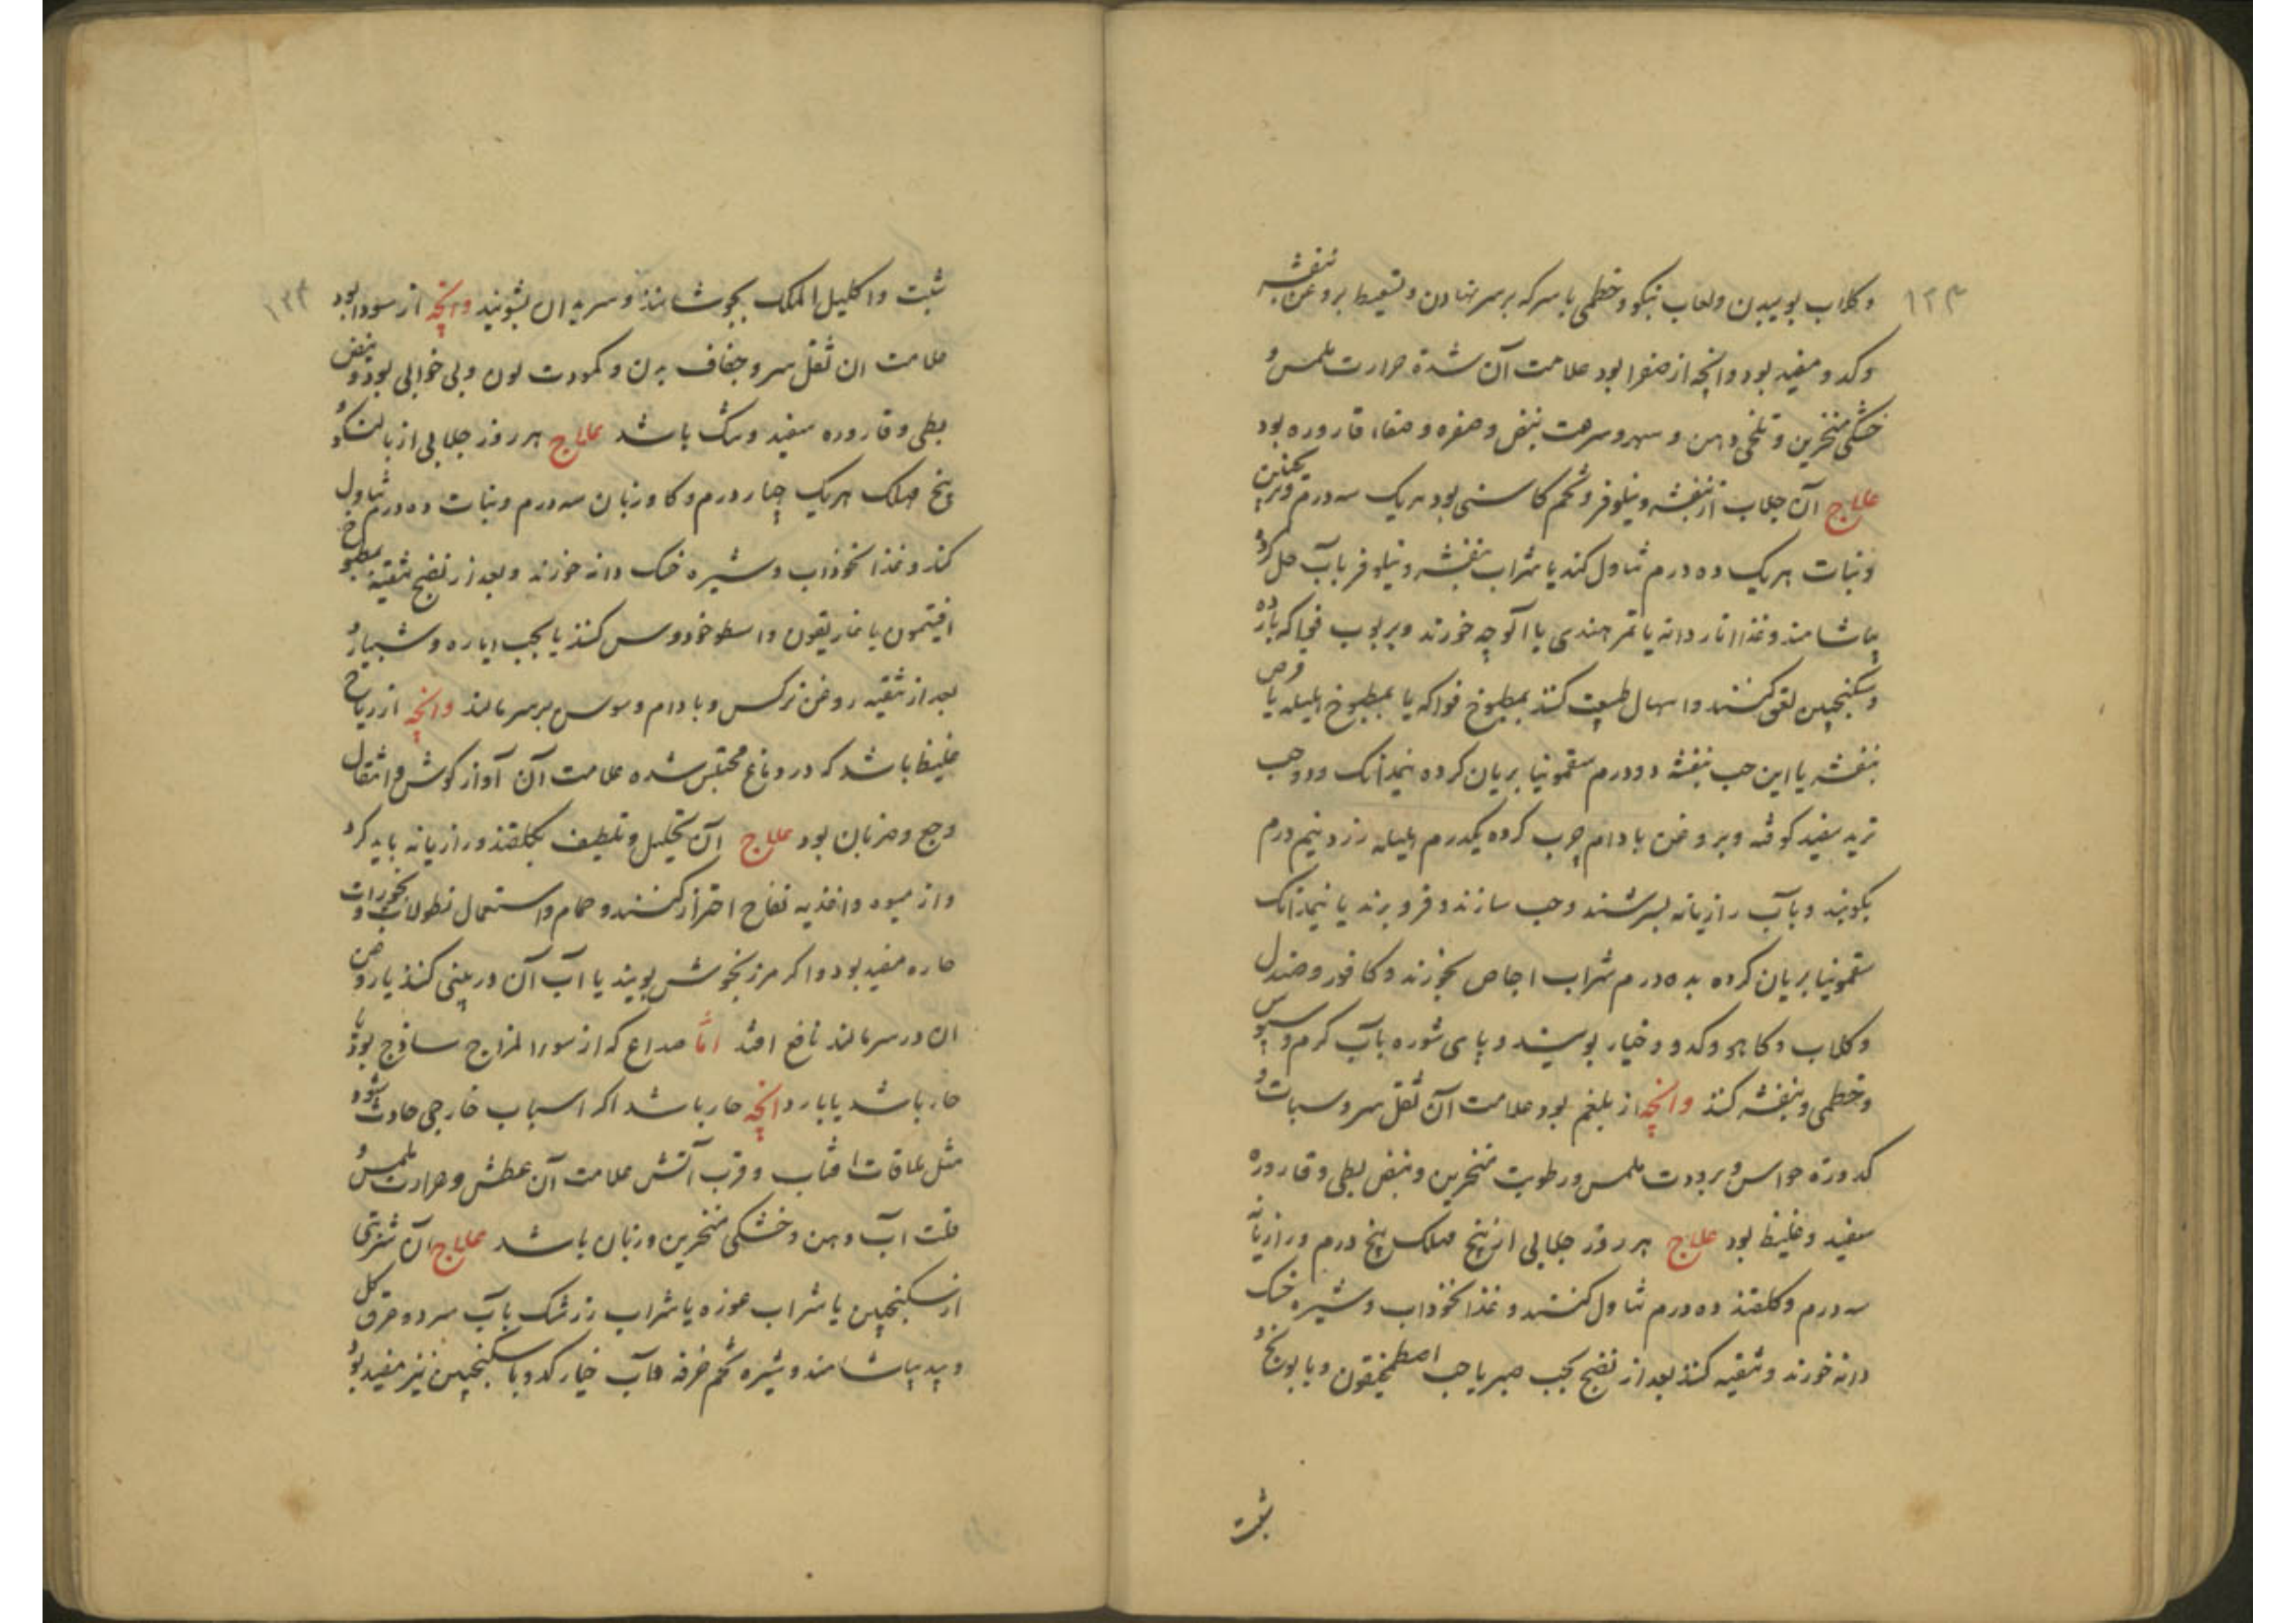 ۱۲۳
وکلاب بوییدن ولعاب نبکو وخطمی با سرکه بر سر نهادن وتسعیط بروغن بنفشه
وکدو مفید بود وانچه از صفرا بود علامت آن شدة حرارت ملمس و
خشکی منخرین و تلخی دهن و سهر و سرعت نبض وصفره وصفاء قاروره بود
علاج آن جلاب از بنفشه ونیلوفر وتخم کاسنی بود هر یک سه درم وترنجبین
ونبات هر یک ده درم تناول کند یا شراب بنفشه ونیلوفر بآب حل کرده
بیاشامند وغذا انار دانه یا تمر هندی یا الوچه خورند وبربوب فواکه بارده
وسکنجبین تقی کنند واسهال طبیعت کنند بمطبوخ فواکه یا بمطبوخ هلیله یا قرص
بنفشه یا این حب بنفشه دو درم سقمونیا بریان کرده نیمدانک ودو حب
تربد سفید کوفته وبروغن بادام چرب کرده یکدرم هلیله زرد نیم درم
بکوبند وبآب رازیانه بسرشند وحب سازند وفرو برند یا نیمدانک
سقمونیا بریان کرده بده درم شراب اجاص بخورند وکافور وصندل
وکلاب وکاهو وکدو وخیار بویند وپای شوره بآب کرم وسپوس
وخطمی وبنفشه کنند وانچه از بلغم بود علامت آن ثقل سر وسبات و
کدورة حواس وبرودت ملمس ورطوبت منخرین ونبض بطی وقاروره
سفید وغلیظ بود علاج هر روز جلابی از بیخ مهلک پنج درم ورازیانه
سه درم وکلقند ده درم تناول کنند وغذا نخوداب وشیره خسک
دانه خورند وتنقیه کنند بعد از نضج بحب صبر یا حب اصطمخیقون وبابونج و
شبت
۱۲۴
شبت واکلیل الملک بجوشانند وسر به ان بشویند وانچه از سودا بود
علامت ان ثقل سر وجفاف بدن وکمودت لون وبی خوابی بود ونبض
بطی وقاروره سفید وتنک باشد علاج هر روز جلابی از بالنکو و
بیخ مهلک هر یک چهار درم وکاوزبان سه درم ونبات ده درم تناول
کند وغذا نخوداب وشیره خسک دانه خورند وبعد از نضج تنقیه بمطبوخ
افتیمون یا غاریقون واسطوخودوس کنند یا بحب ایاره وشبیار و
بعد از تنقیه روغن نرکس وبادام وسوسن بر سر مالند وانچه از ریاح
غلیظ باشد که در دماغ محتبس شده علامت آن آواز کوش و انتقال
وجع وضربان بود علاج آن تحلیل وتلطیف بکلقند ورازیانه باید کرد
واز میوه واغذیه نفاخ احتراز کنند وحمام واستعمال نطولات وبخورات
حاره مفید بود واکر مرزنجوش بویند یا آب آن در بینی کنند یا روغن
ان در سر مالند نافع افتد امّا صداع که از سوء المزاج ساذج بود یا
حار باشد یا بارد انچه حار باشد اکر اسباب خارجی حادث شود
مثل ملاقات افتاب وقرب آتش علامت آن عطش وحرارت ملمس و
قلت آب دهن وخشکی منخرین وزبان باشد علاج آن شربتی
از سکنجبین یا شراب غوره یا شراب زرشک بآب سرد وعرق کل
وبید بیاشامند وشیره تخم خرفه وآب خیار کدو با سکنجبین نیز مفید بود